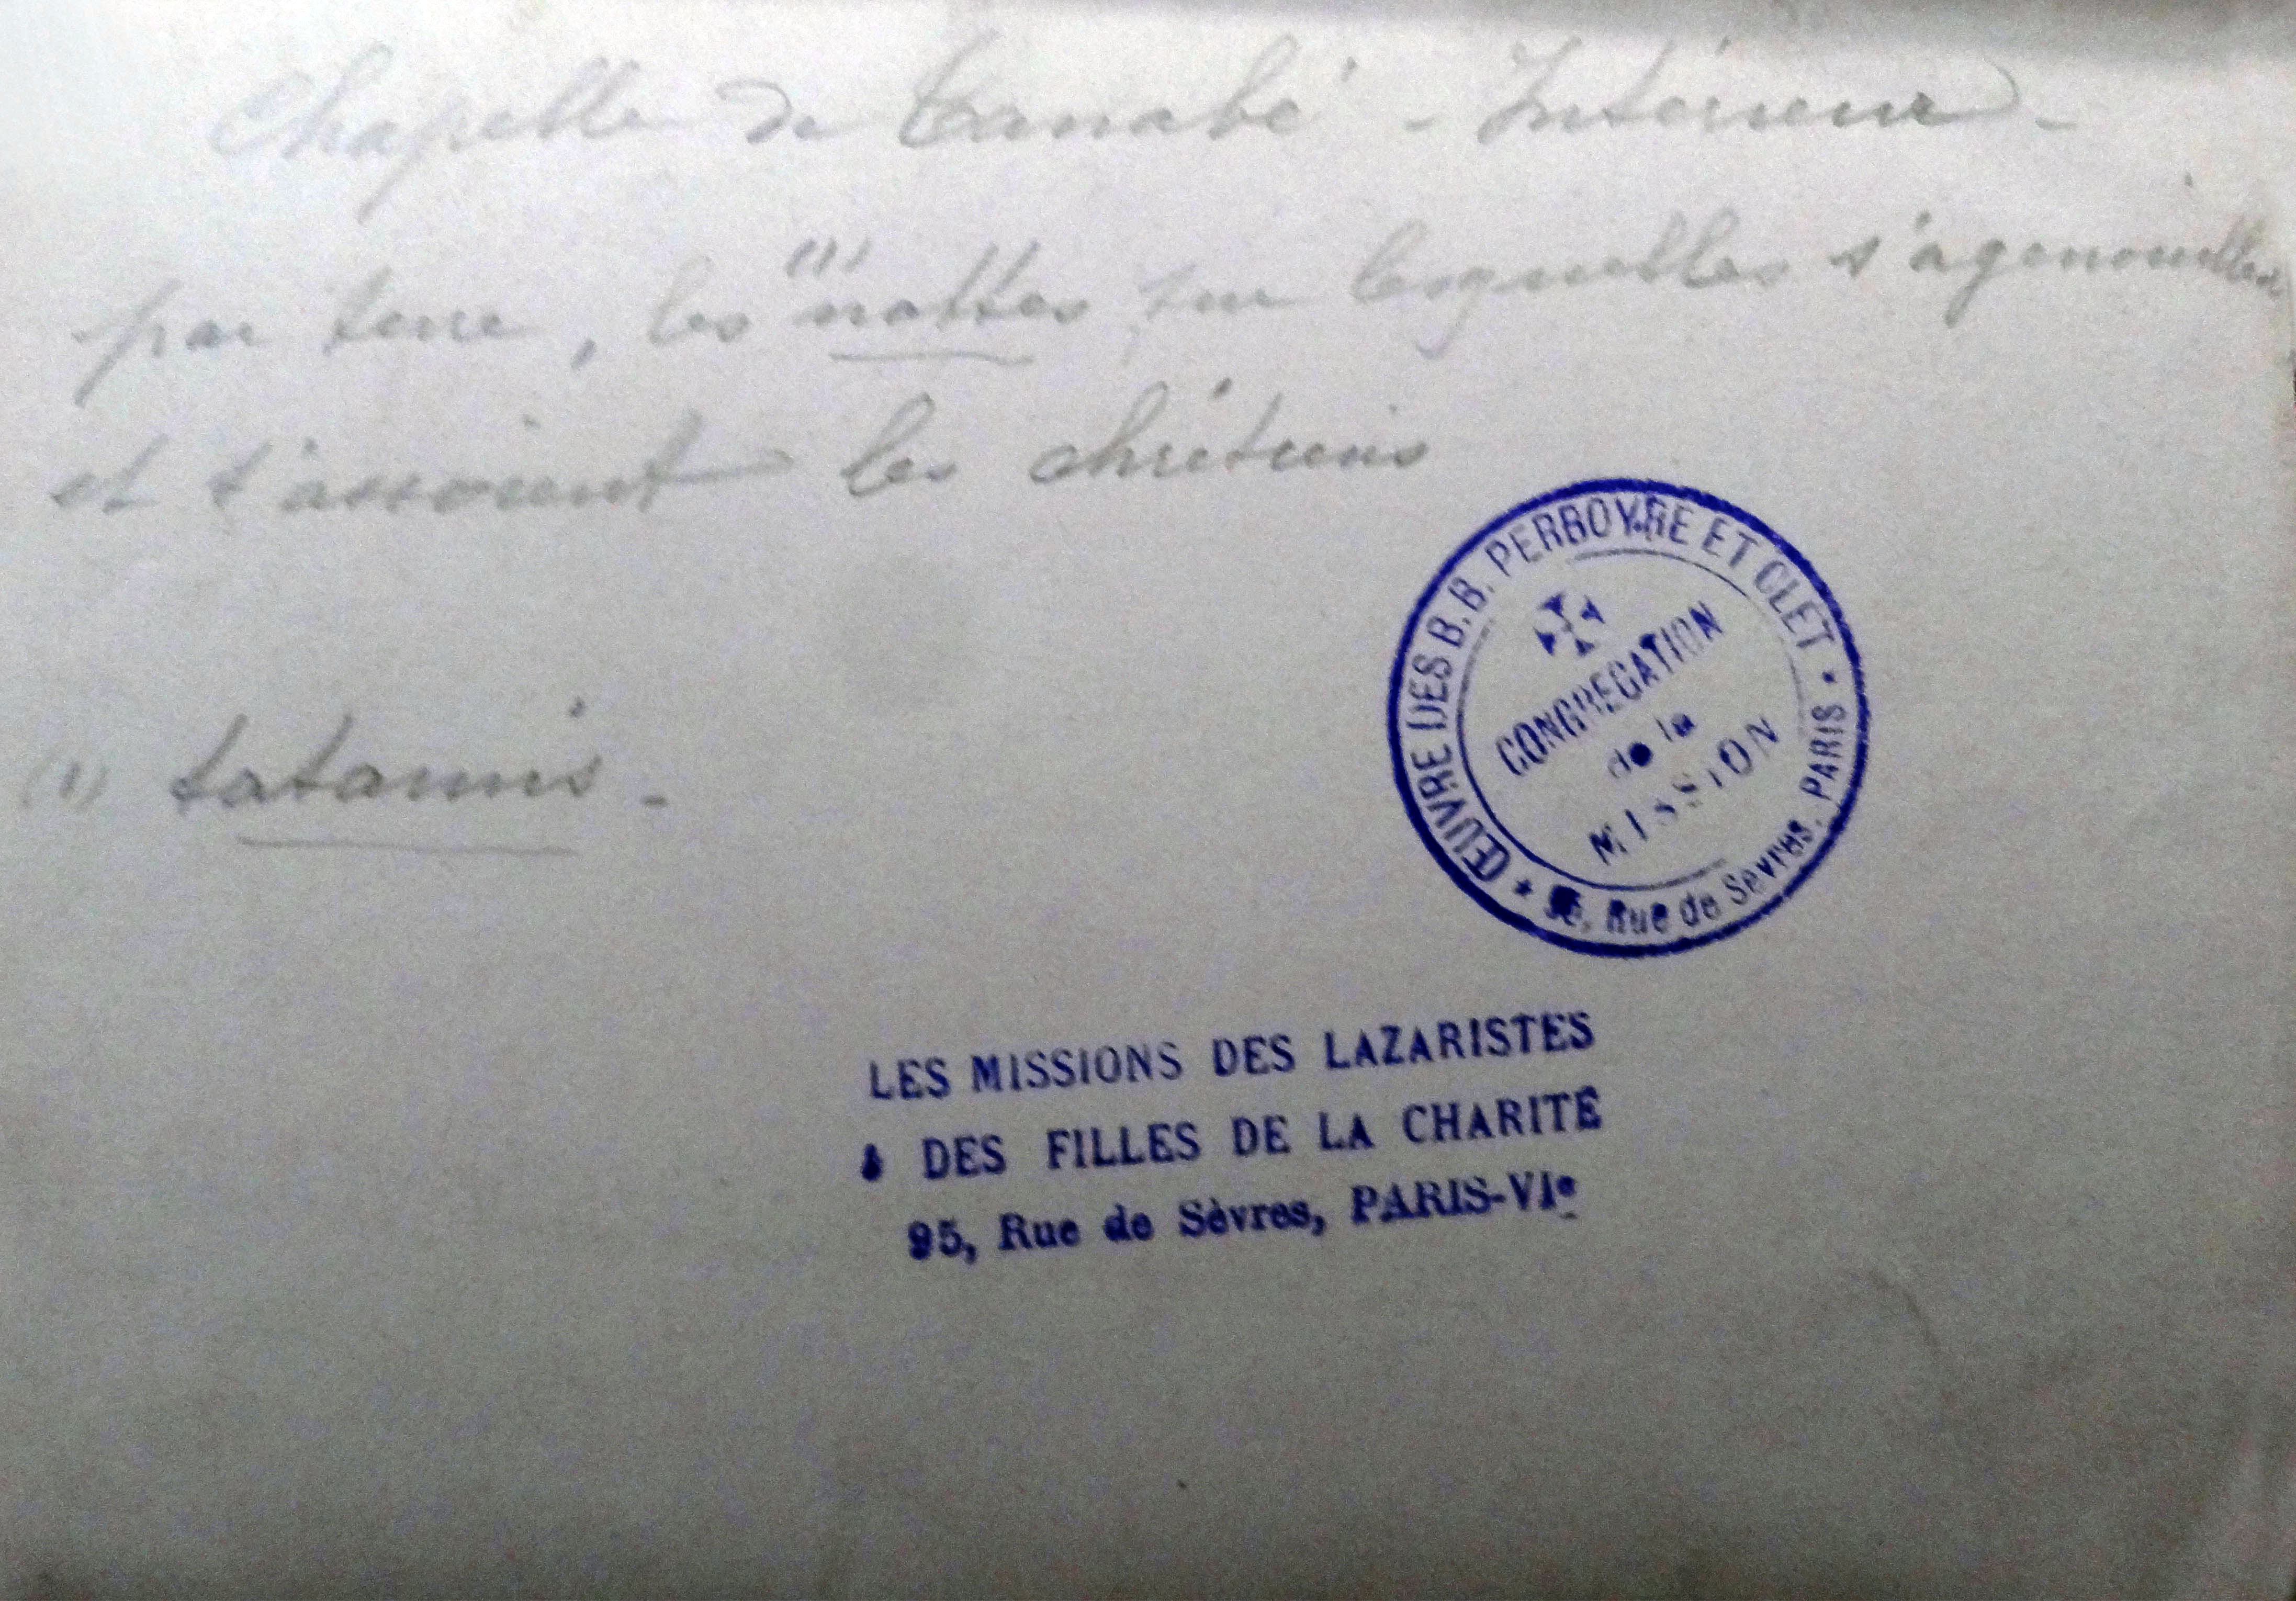 Chapelle de Tanabé - Intérieur -
par terre, les nattes (1) sur lesquelles s'agenouillent
et s'assoient les chrétiens
(1) tatamis -
ŒUVRE DES B.B. PERBOYRE ET CLET
CONGREGATION
de la
MISSION
95, Rue de Sèvres. PARIS
LES MISSIONS DES LAZARISTES
& DES FILLES DE LA CHARITÉ
95, Rue de Sèvres, PARIS-VIe